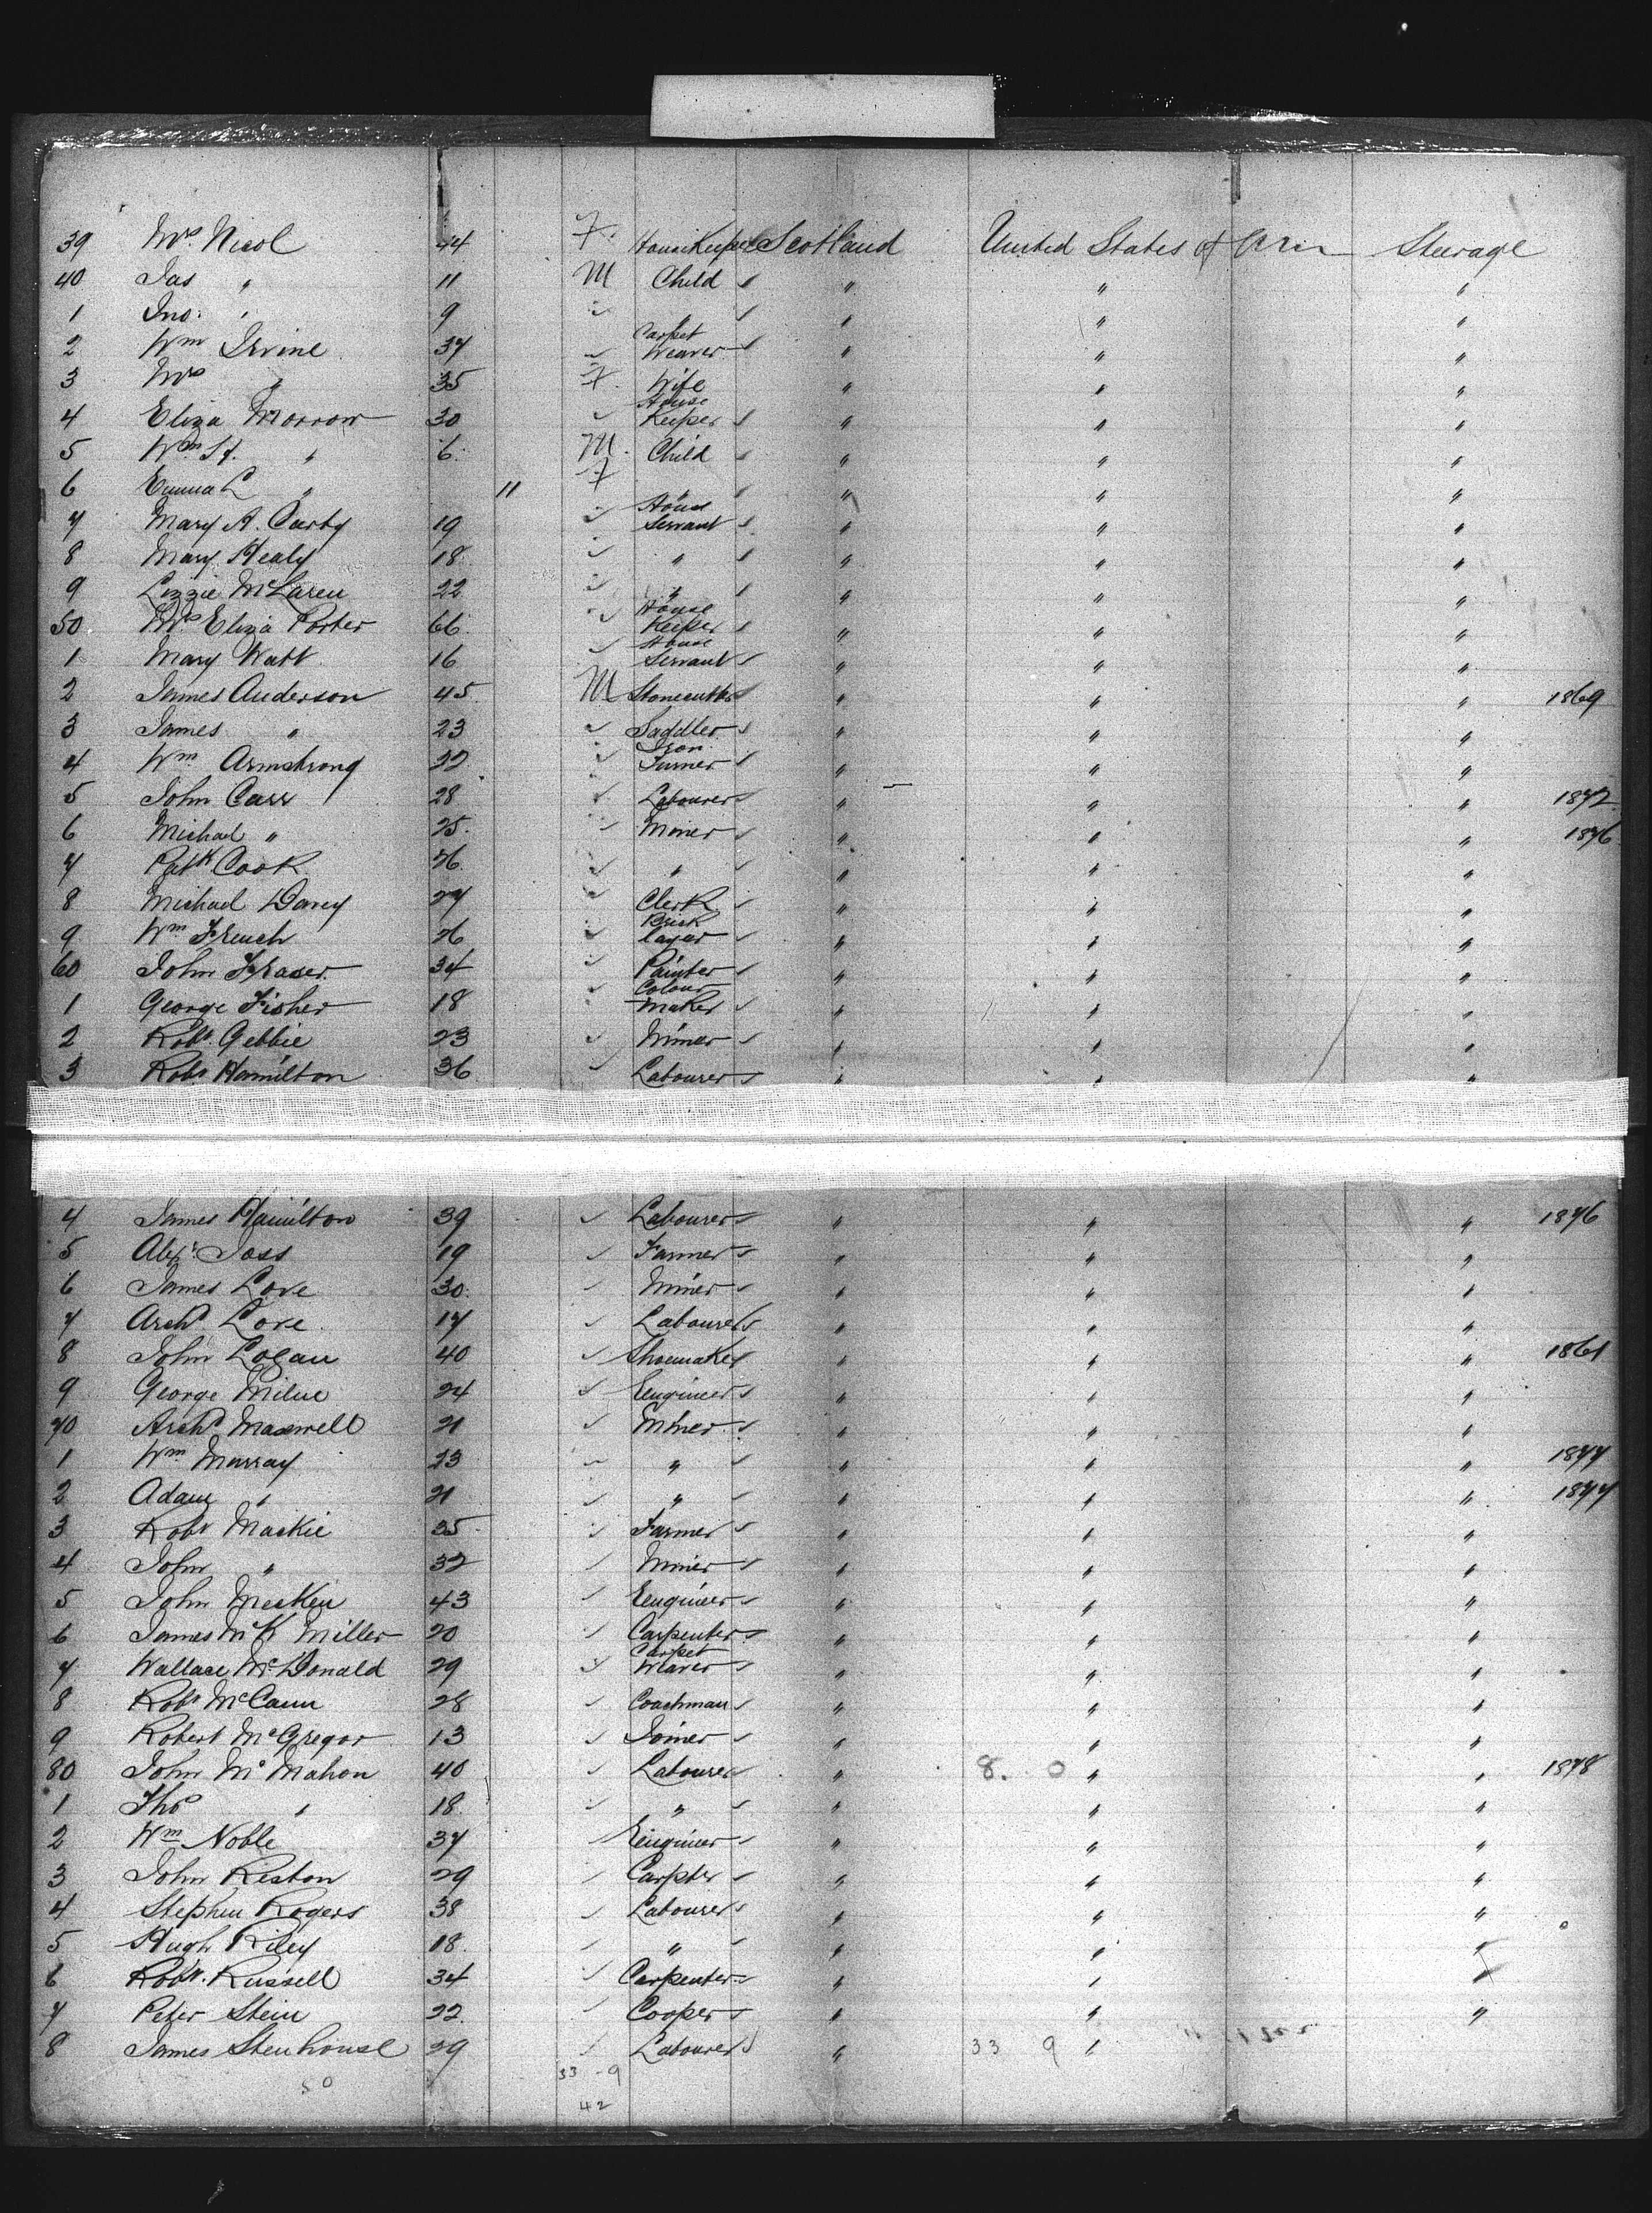 39 Mrs Nicol 44 F. HouseKeeper Scotland United States of Am Steerage
40 Jas " 11 M Child " " "
1 Jno. " 9 " " " " "
2 Wm Irvine 37 " Carpet Weaver " " "
3 Mrs " 35 F. Wife " " "
4 Eliza Morrow 30 " House Keeper " " "
5 Wm " 6 M. Child " " "
6 Emma L " 11 F " " " "
7 Mary A. 19 " House Servant " " "
8 Mary Healy 18 " " " " "
9 Lizzie McLaren 22 " " " " "
50 Mrs Eliza Porter 66 " House Keeper " " "
1 Mary Watt 16 " House Servant " " "
2 James Anderson 45 M Stonecutter " " " 1869
3 James " 23 " Saddler " " "
4 Wm Armstrong 22 " Iron Turner " " "
5 John Carr 28 " Labourer " " " 1872
6 Michael " 25 " Miner " " " 1876
7 Patk Cook 26 " " " " "
8 Michael 27 " Clerk " " "
9 Wm French 26 " Brick layer " " "
60 John Fraser 34 " Painter " " "
1 George Fisher 18 " Colour Maker " " "
2 Robt. Gebbie 23 " Miner " " "
3 Robt Hamilton 36 " Labourer " " "
4 James Hamilton 39 " Labourer " " " 1876
5 Alexr Joss 19 " Farmer " " "
6 James Love 30 " Miner " " "
7 Archd Love 17 " Labourer " " "
8 John Logan 40 " Shoemaker " " " 1861
9 George Milne 24 " Engineer " " "
70 Archd Maxwell 21 " Miner " " "
1 Wm Murray 23 " " " " " 1877
2 Adam " 21 " " " " " 1877
3 Robt Mackie 35 " Farmer " " "
4 John " 32 " Miner " " "
5 John 43 " Engineer " " "
6 James McK Miller 20 " Carpenter " " "
7 Wallace McDonald 29 " Carpet Weaver " " "
8 Robt McCann 28 " Coachman " " "
9 Robert McGregor 13 " Joiner " " "
80 John McMahon 40 " Labourer " 8. 0 " " 1878
1 Thos " 18 " " " " "
2 Wm Noble 37 Engineer " " "
3 John Reston 29 " Carpter " " "
4 Stephen Rogers 38 Labourer " " "
5 Hugh Riley 18 " " " "
6 Robt. Russell 34 " Carpenter " " "
7 Peter Stein 22 " Cooper " " "
8 James Stenhouse 29 " Labourer " 33 9 "
50 33 - 9
42